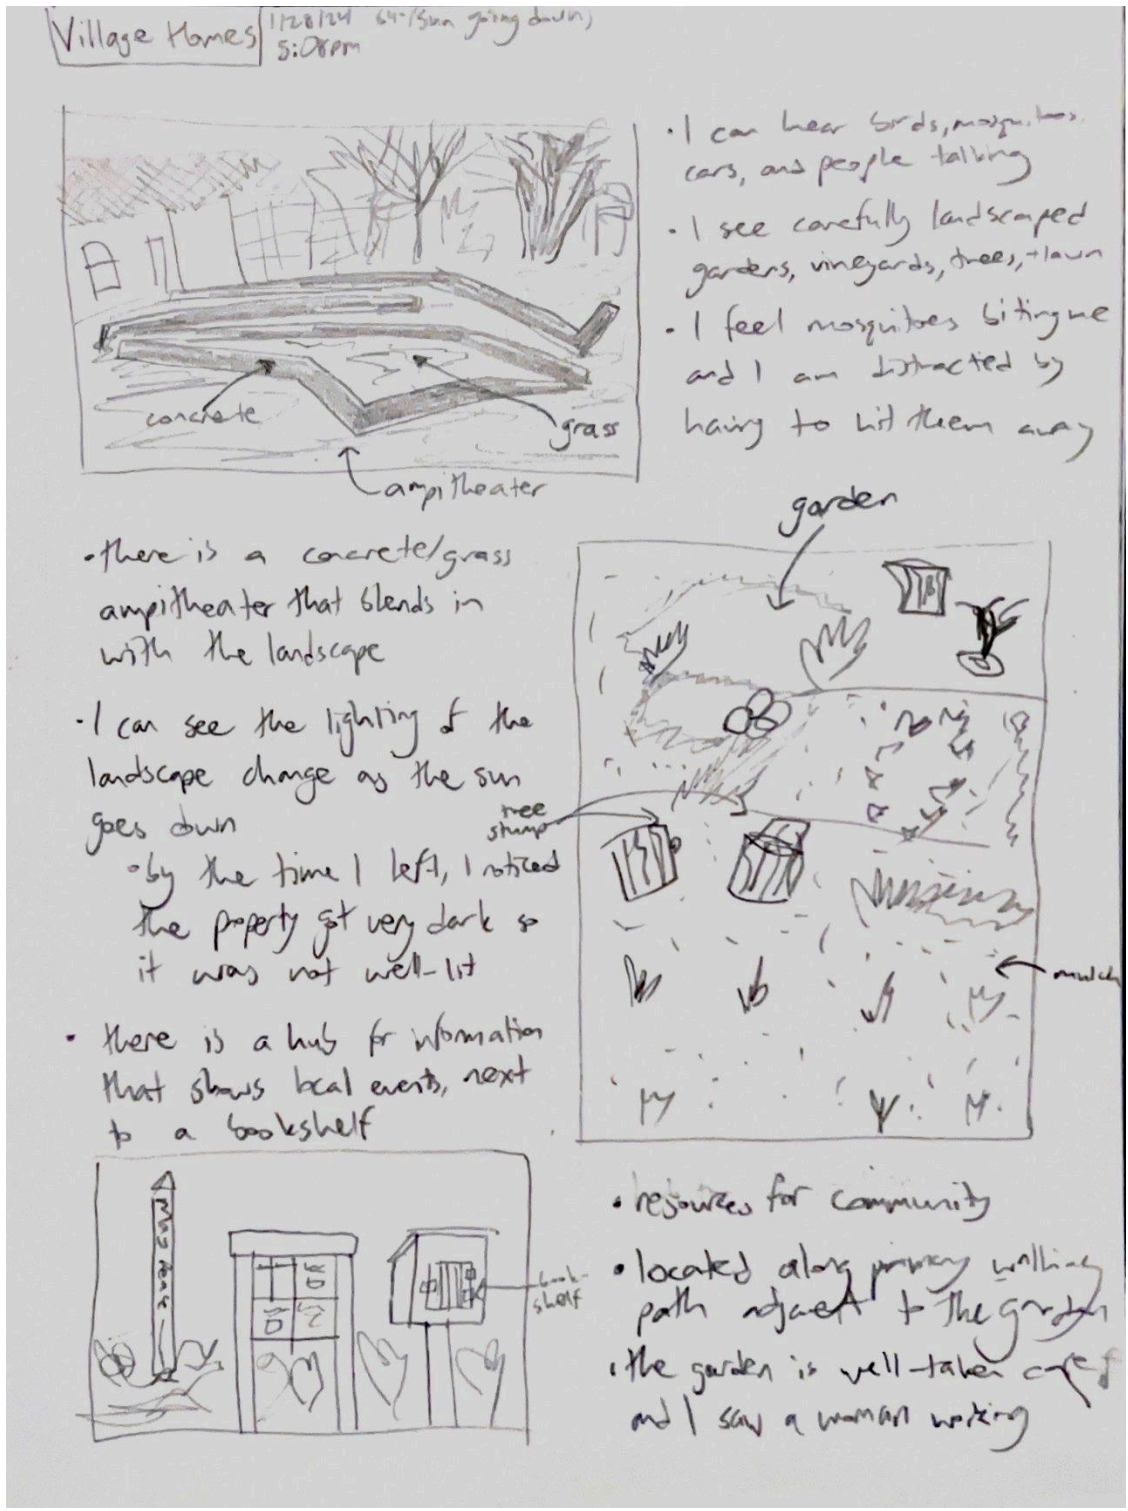 Village Homes
1/28/24 64° (sun going down)
5:08pm
• I can hear birds, mosquitoes,
cars, and people talking
• I see carefully landscaped
gardens, vineyards, trees, + lawn
• I feel mosquitoes biting me
and I am distracted by
having to hit them away
concrete
grass
ampitheater
• there is a concrete/grass
ampitheater that blends in
with the landscape
• I can see the lighting of the
landscape change as the sun
goes down
• by the time I left, I noticed
the property got very dark so
it was not well-lit
• there is a hub for information
that shows local events, next
to a bookshelf
garden
tree
stump
mulch
book-
shelf
• resources for community
• located along primary walking
path adjacent to the garden
• the garden is well-taken care of
and I saw a woman working